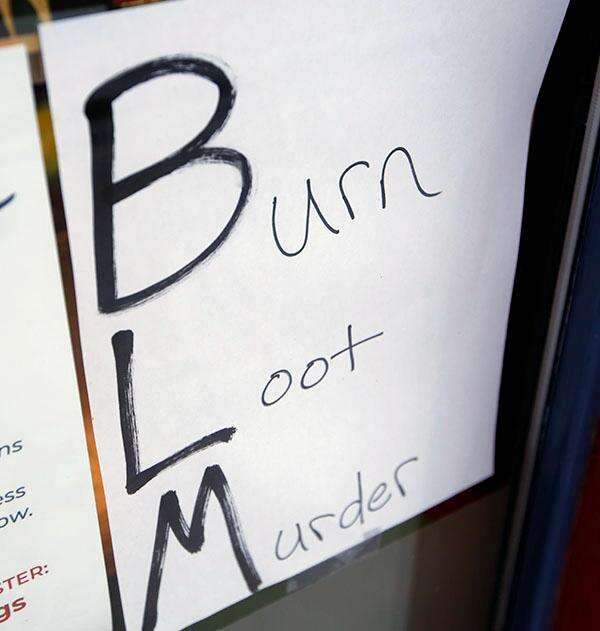 Burn
Loot
Murder
ns
ess
ow.
STER:
gs